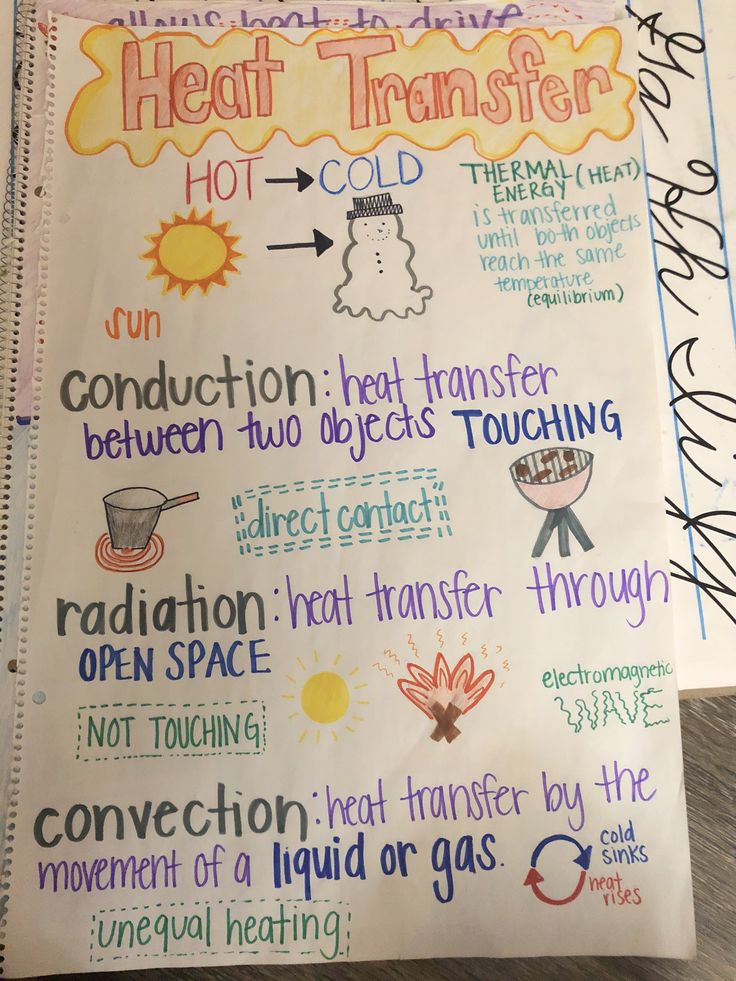 allows heat to drive
Heat Transfer
HOT → COLD
THERMAL (HEAT)
ENERGY
is transferred
until both objects
reach the same
temperature
(equilibrium)
sun
conduction: heat transfer
between two objects TOUCHING
direct contact
radiation: heat transfer through
OPEN SPACE
electromagnetic
WAVE
NOT TOUCHING
convection: heat transfer by the
movement of a liquid or gas.
cold
sinks
heat
rises
unequal heating